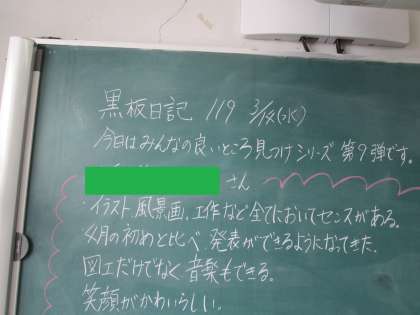 黒板日記 119 3/14(水)
今日はみんなの良いところ見つけシリーズ 第9弾です。
さん
・イラスト 風景画、工作など全てにおいてセンスがある。
4月の初めと比べ 発表ができるようになってきた。
図工だけでなく音楽もできる。
笑顔がかわいらしい。